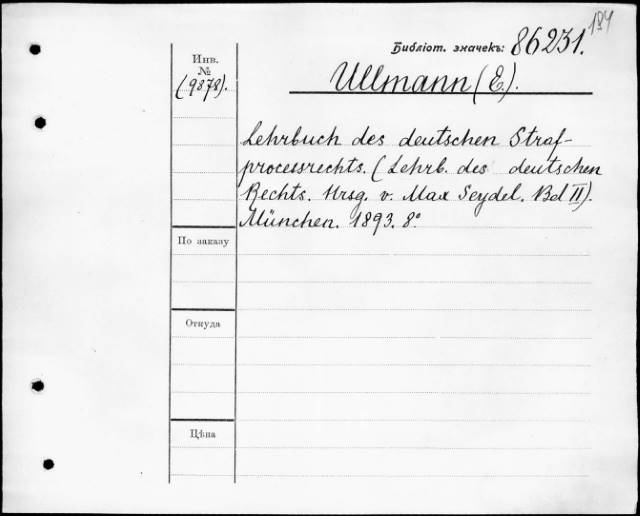 184
Библіот. значекъ: 86231.
Инв.
№
(9878).
Ullmann (E.).
Lehrbuch des deutschen Straf-
processrechts. (Lehrb. des deutschen
Rechts. Hrsg. v. Max Seydel. Bd II).
München. 1893. 8°
По заказу
Откуда
Цѣна